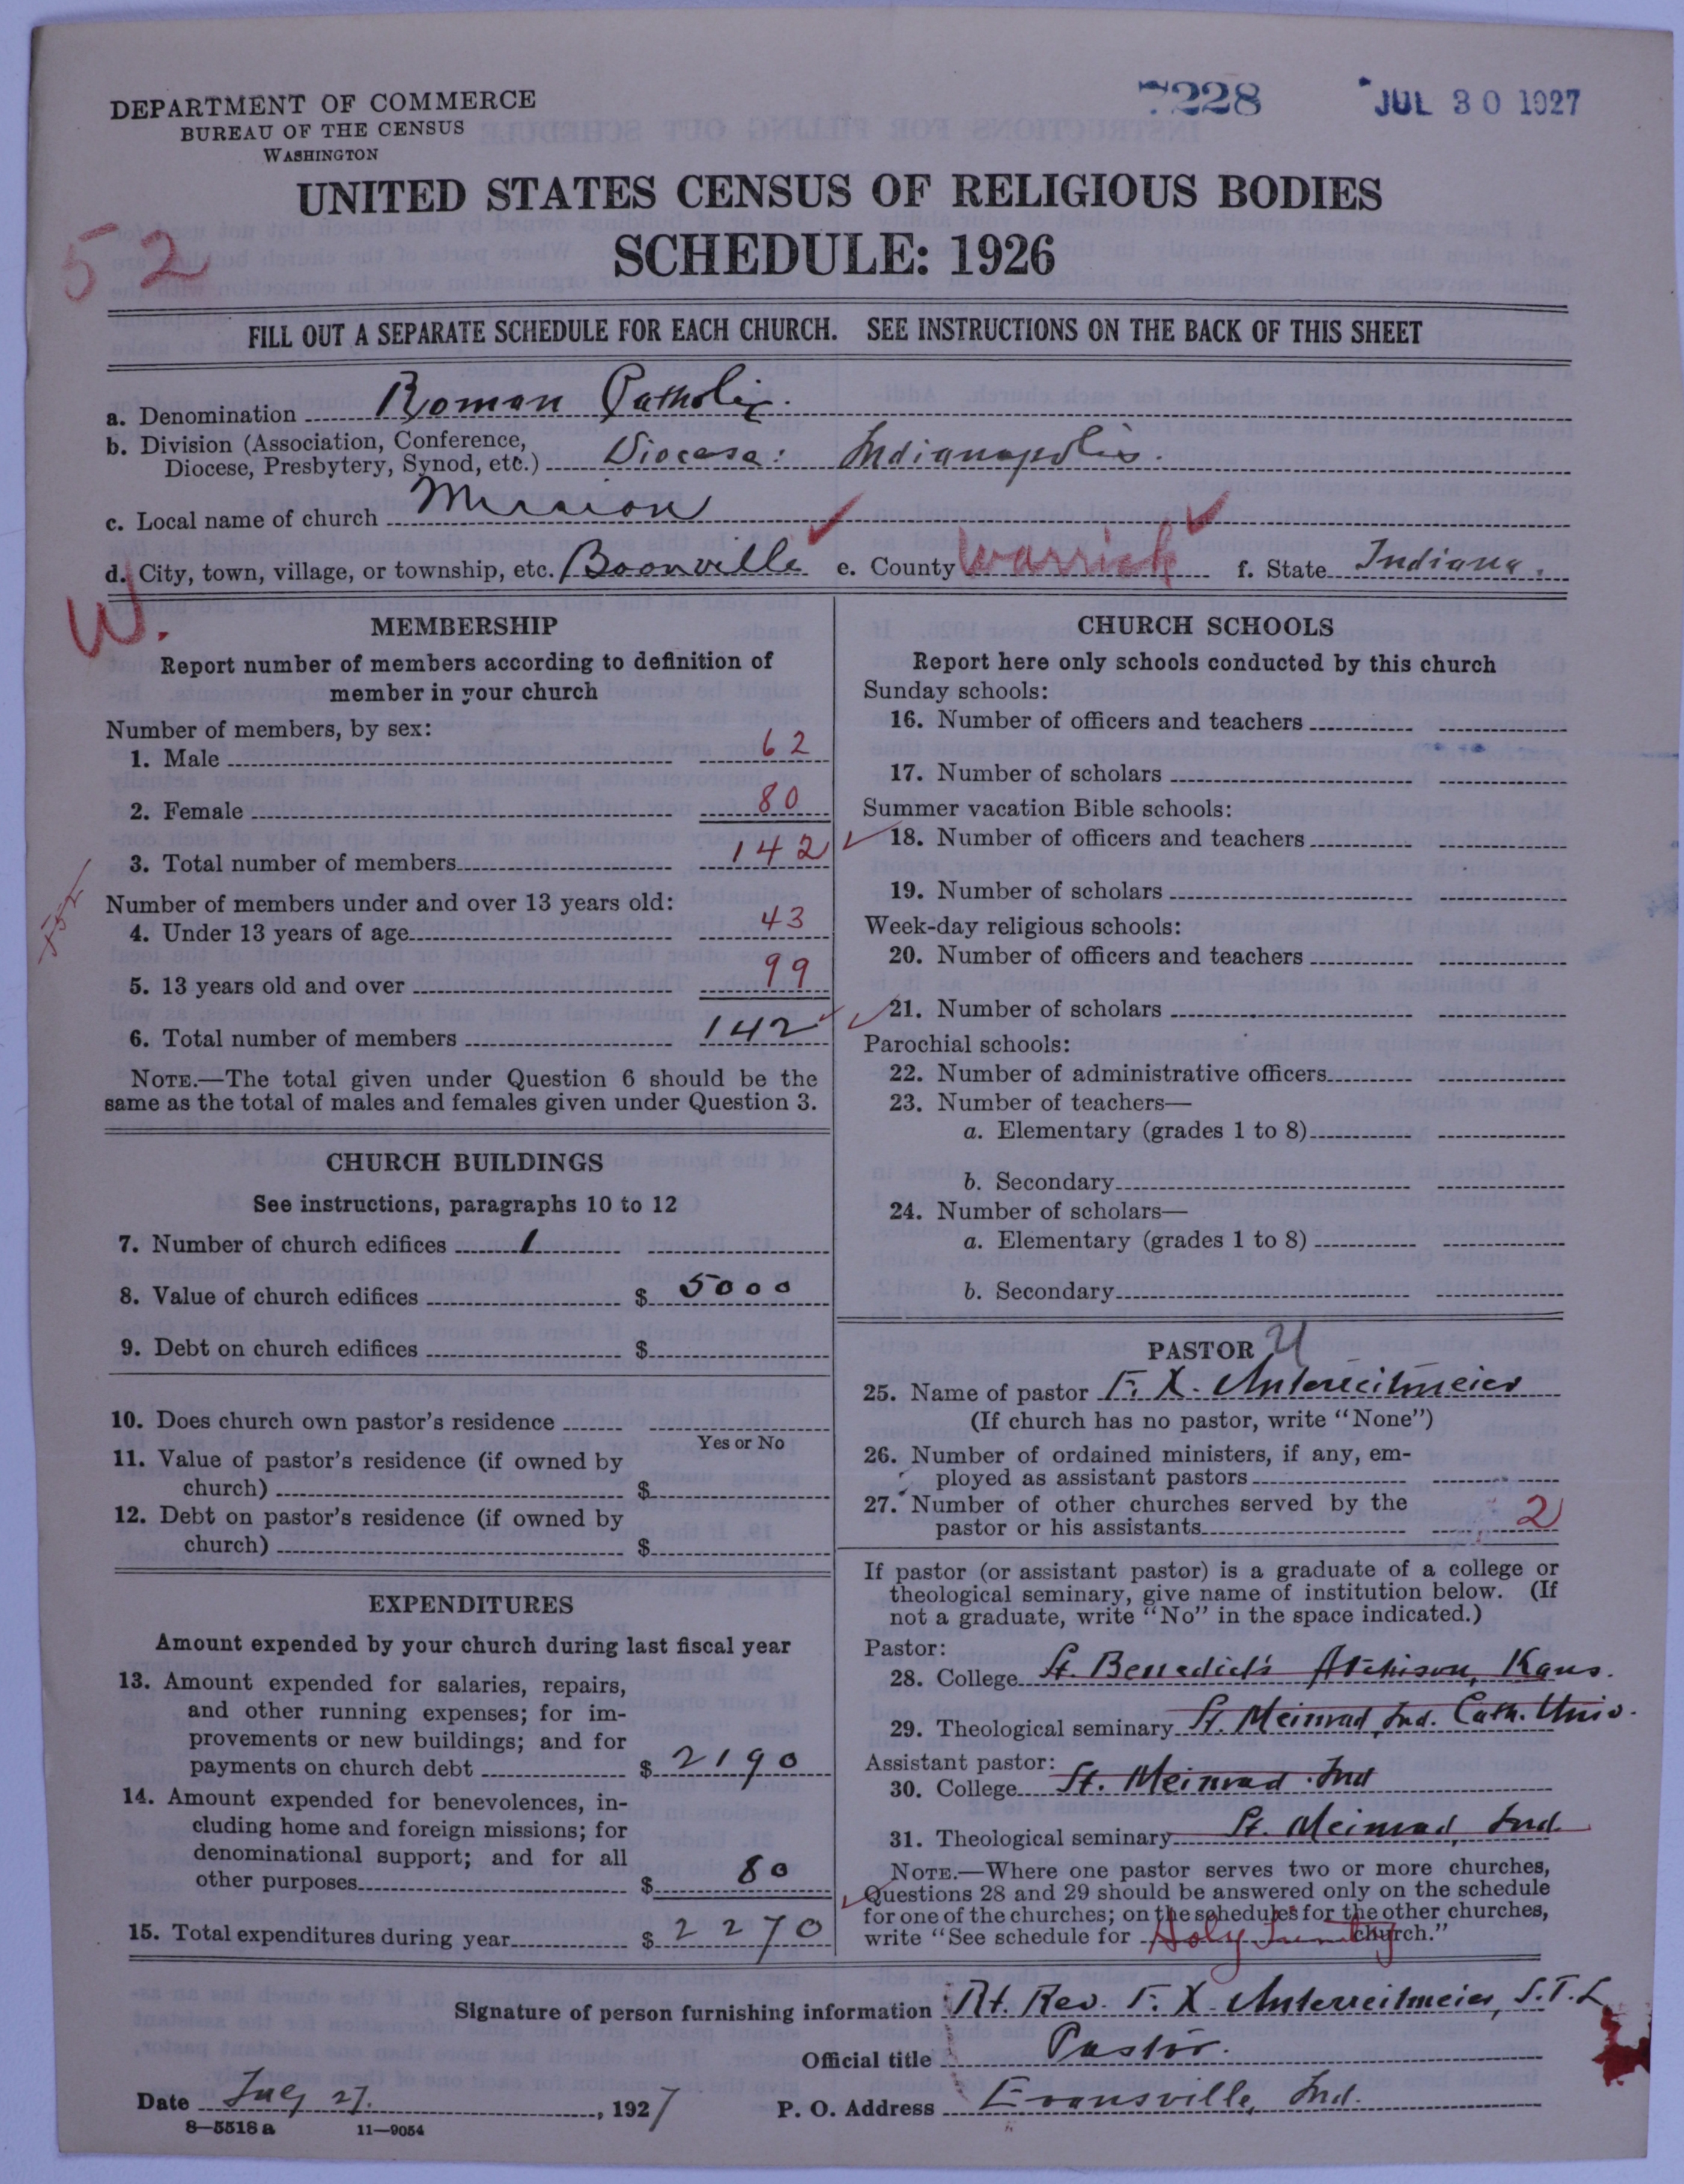 DEPARTMENT OF COMMERCE
BUREAU OF THE CENSUS
WASHINGTON
7228
JUL 30 1927
UNITED STATES CENSUS OF RELIGIOUS BODIES
SCHEDULE: 1926
52
FILL OUT A SEPARATE SCHEDULE FOR EACH CHURCH. SEE INSTRUCTIONS ON THE BACK OF THIS SHEET
a. Denomination Roman Catholic.
b. Division (Association, Conference,
Diocese, Presbytery, Synod, etc.) Diocese: Indianapolis.
c. Local name of church Mission
d. City, town, village, or township, etc. Boonville e. County Warrick f. State Indiana.
W.
MEMBERSHIP
Report number of members according to definition of
member in your church
Number of members, by sex:
1. Male 62
2. Female 80
3. Total number of members 142
Number of members under and over 13 years old:
4. Under 13 years of age 43
5. 13 years old and over 99
6. Total number of members 142
NOTE.—The total given under Question 6 should be the
same as the total of males and females given under Question 3.
CHURCH BUILDINGS
See instructions, paragraphs 10 to 12
7. Number of church edifices 1
8. Value of church edifices $ 5000
9. Debt on church edifices $
10. Does church own pastor's residence
Yes or No
11. Value of pastor's residence (if owned by
church) $
12. Debt on pastor's residence (if owned by
church) $
EXPENDITURES
Amount expended by your church during last fiscal year
13. Amount expended for salaries, repairs,
and other running expenses; for im-
provements or new buildings; and for
payments on church debt $ 2190
14. Amount expended for benevolences, in-
cluding home and foreign missions; for
denominational support; and for all
other purposes $ 80
15. Total expenditures during year $ 2270
CHURCH SCHOOLS
Report here only schools conducted by this church
Sunday schools:
16. Number of officers and teachers
17. Number of scholars
Summer vacation Bible schools:
18. Number of officers and teachers
19. Number of scholars
Week-day religious schools:
20. Number of officers and teachers
21. Number of scholars
Parochial schools:
22. Number of administrative officers
23. Number of teachers—
a. Elementary (grades 1 to 8)
b. Secondary
24. Number of scholars—
a. Elementary (grades 1 to 8)
b. Secondary
PASTOR
25. Name of pastor F. X. Unterreitmeier
(If church has no pastor, write "None")
26. Number of ordained ministers, if any, em-
ployed as assistant pastors
27. Number of other churches served by the
pastor or his assistants 2
If pastor (or assistant pastor) is a graduate of a college or
theological seminary, give name of institution below. (If
not a graduate, write "No" in the space indicated.)
Pastor:
28. College St. Benedict's Atchison, Kans.
29. Theological seminary St. Meinrad, Ind. Cath. Univ.
Assistant pastor:
30. College St. Meinrad Ind
31. Theological seminary St. Meinrad, Ind.
NOTE.—Where one pastor serves two or more churches,
Questions 28 and 29 should be answered only on the schedule
for one of the churches; on the schedules for the other churches,
write "See schedule for Holy Trinity church."
Signature of person furnishing information Rt. Rev. F. X. Unterreitmeier, S.T.L.
Official title Pastor.
Date July 27. , 1927
P. O. Address Evansville, Ind.
8—5518 a 11—9054